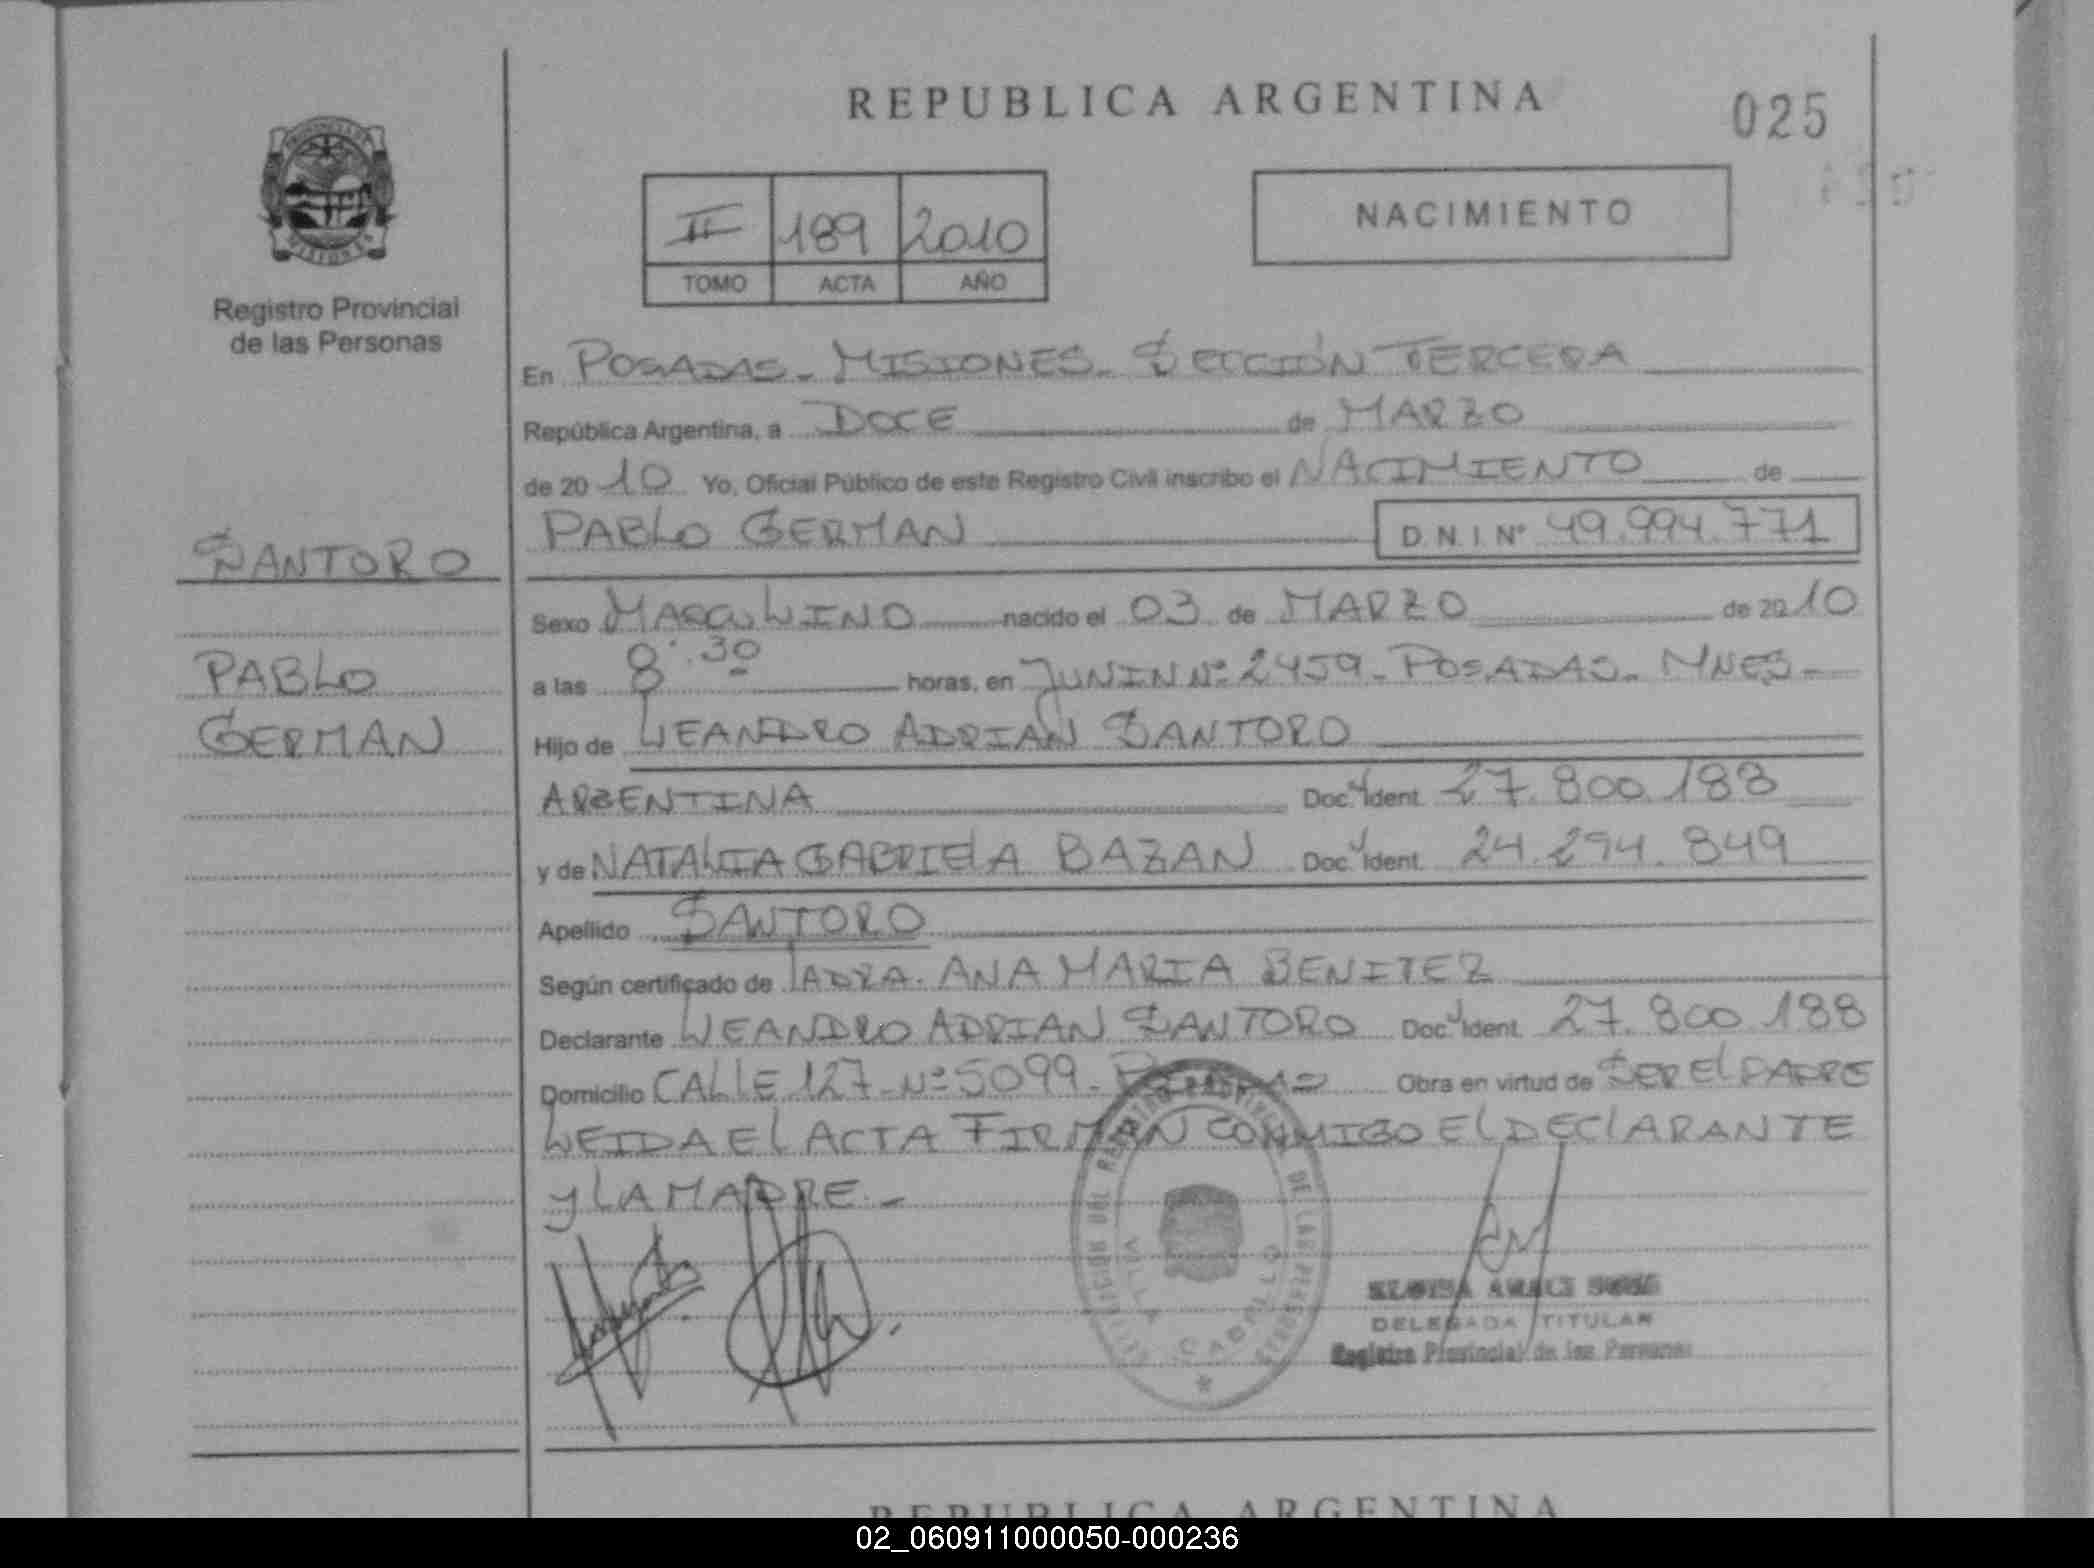 REPUBLICA ARGENTINA
025
II 189 2010
TOMO ACTA AÑO
NACIMIENTO
Registro Provincial
de las Personas
En POSADAS - MISIONES - SECCIÓN TERCERA
República Argentina, a DOCE de MARZO
de 2010 Yo, Oficial Público de este Registro Civil inscribo el NACIMIENTO de
PABLO GERMAN D.N.I Nº 49.994.771
SANTORO
Sexo MASCULINO nacido el 03 de MARZO de 2010
PABLO
a las 8.30 horas, en JUNIN Nº 2459 - POSADAS - MNES -
GERMAN
Hijo de LEANDRO ADRIAN SANTORO
ARGENTINA Doc. Ident. 27.800.188
y de NATALIA GABRIELA BAZAN Doc. Ident. 24.294.849
Apellido SANTORO
Según certificado de ANA MARIA BENITEZ
Declarante LEANDRO ADRIAN SANTORO Doc. Ident. 27.800.188
Domicilio CALLE 127 - Nº 5099 - POSADAS Obra en virtud de SER EL PADRE
LEIDA EL ACTA FIRMAN CONMIGO EL DECLARANTE
y LA MADRE -
DEL REGISTRO PROVINCIAL DE LAS PERSONAS
VILLA CABELLO
DELEGADA TITULAR
Registro Provincial de las Personas
REPUBLICA ARGENTINA
02_060911000050-000236